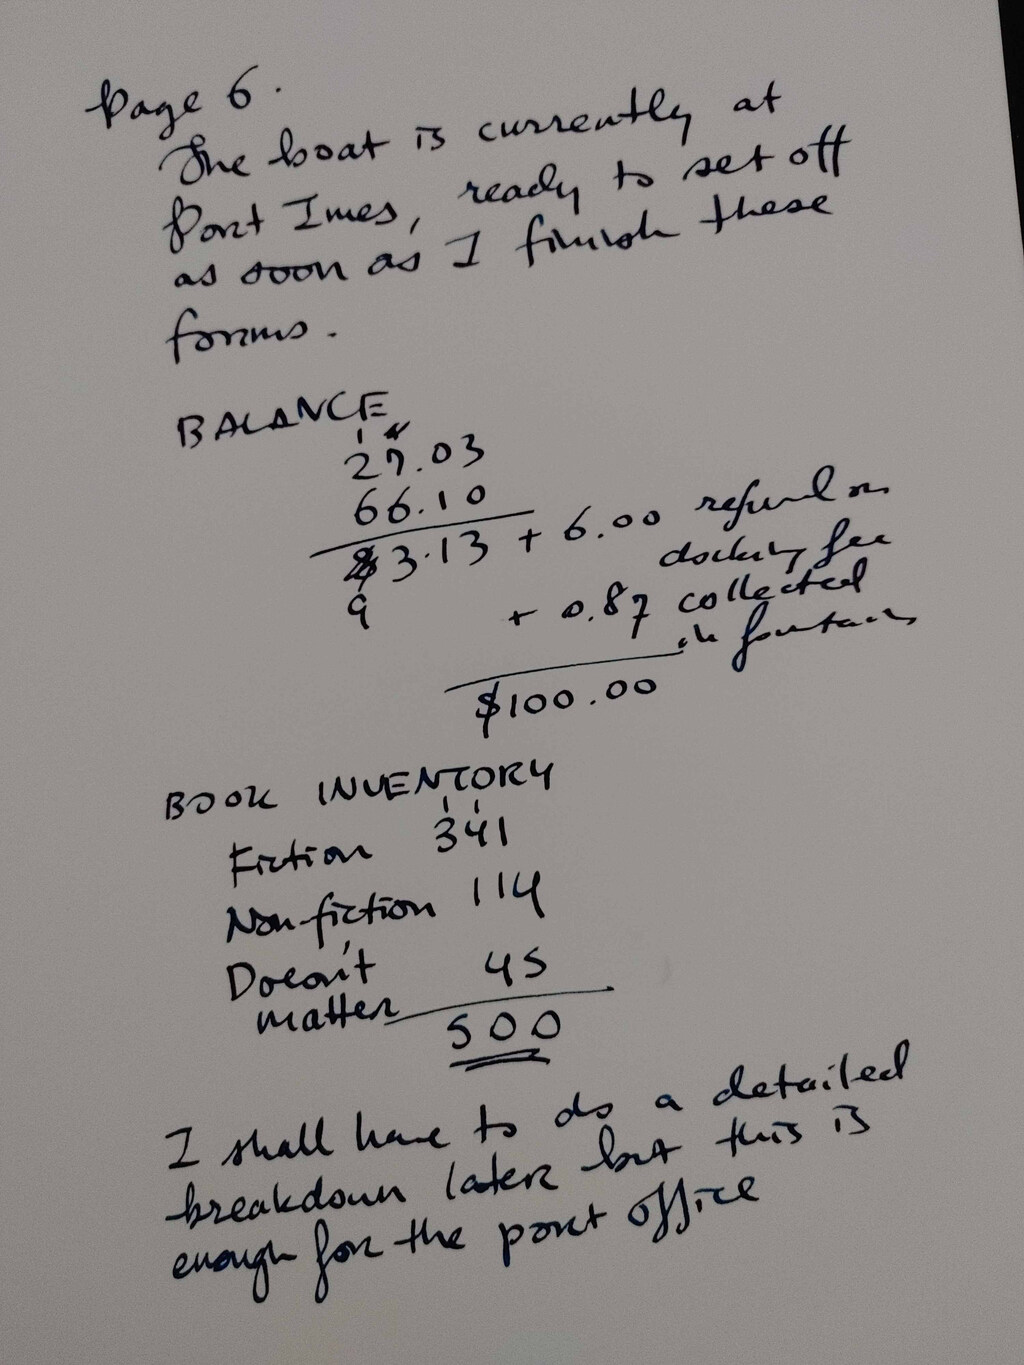 Page 6.
The boat is currently at
Port Imes, ready to set off
as soon as I finish these
forms.
BALANCE
1
27.03
66.10
93.13 + 6.00 refund on
docking fee
+ 0.87 collected
in fountains
$100.00
BOOK INVENTORY
1 1
Fiction 341
Non-fiction 114
Doesn't 45
matter
500
I shall have to do a detailed
breakdown later but this is
enough for the port office